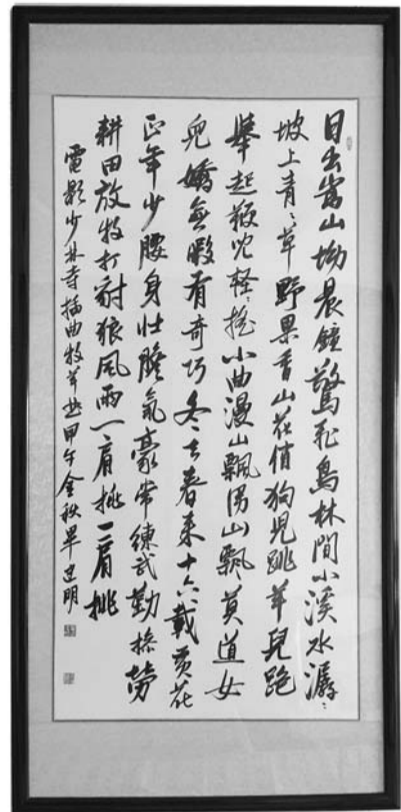 日出嵩山坳晨鐘驚飛鳥林間小溪水潺〻
坡上青〻草野果香山花俏狗兒跳羊兒跑
舉起鞭兒輕〻搖小曲漫山飄滿山飄莫道女
兒嬌無暇有奇巧冬去春來十六載黃花
正年少腰身壯膽氣豪常練武勤操勞
耕田放牧打豺狼風雨一肩挑一肩挑
電影少林寺插曲牧羊曲甲午金秋畢建明